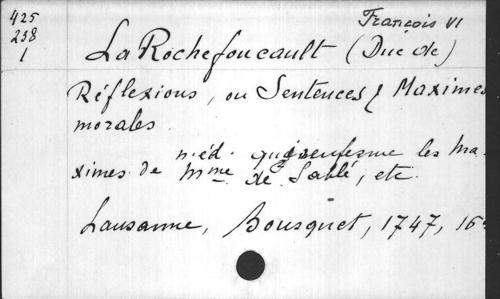 425
238
1
François VI
La Rochefoucault (Duc de)
Réflexions, ou Sentences & Maximes
morales.
n. éd. qui renferme les Ma-
ximes de Mme de Sablé, etc.
Lausanne, Bousquet, 1747, 16°